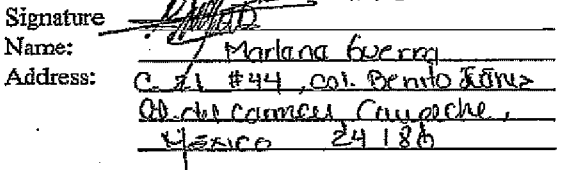 Signature
Name: Mariana Guerra
Address: C. 21 #44, col. Benito Juárez
Cd. del carmen Campeche,
México 24180